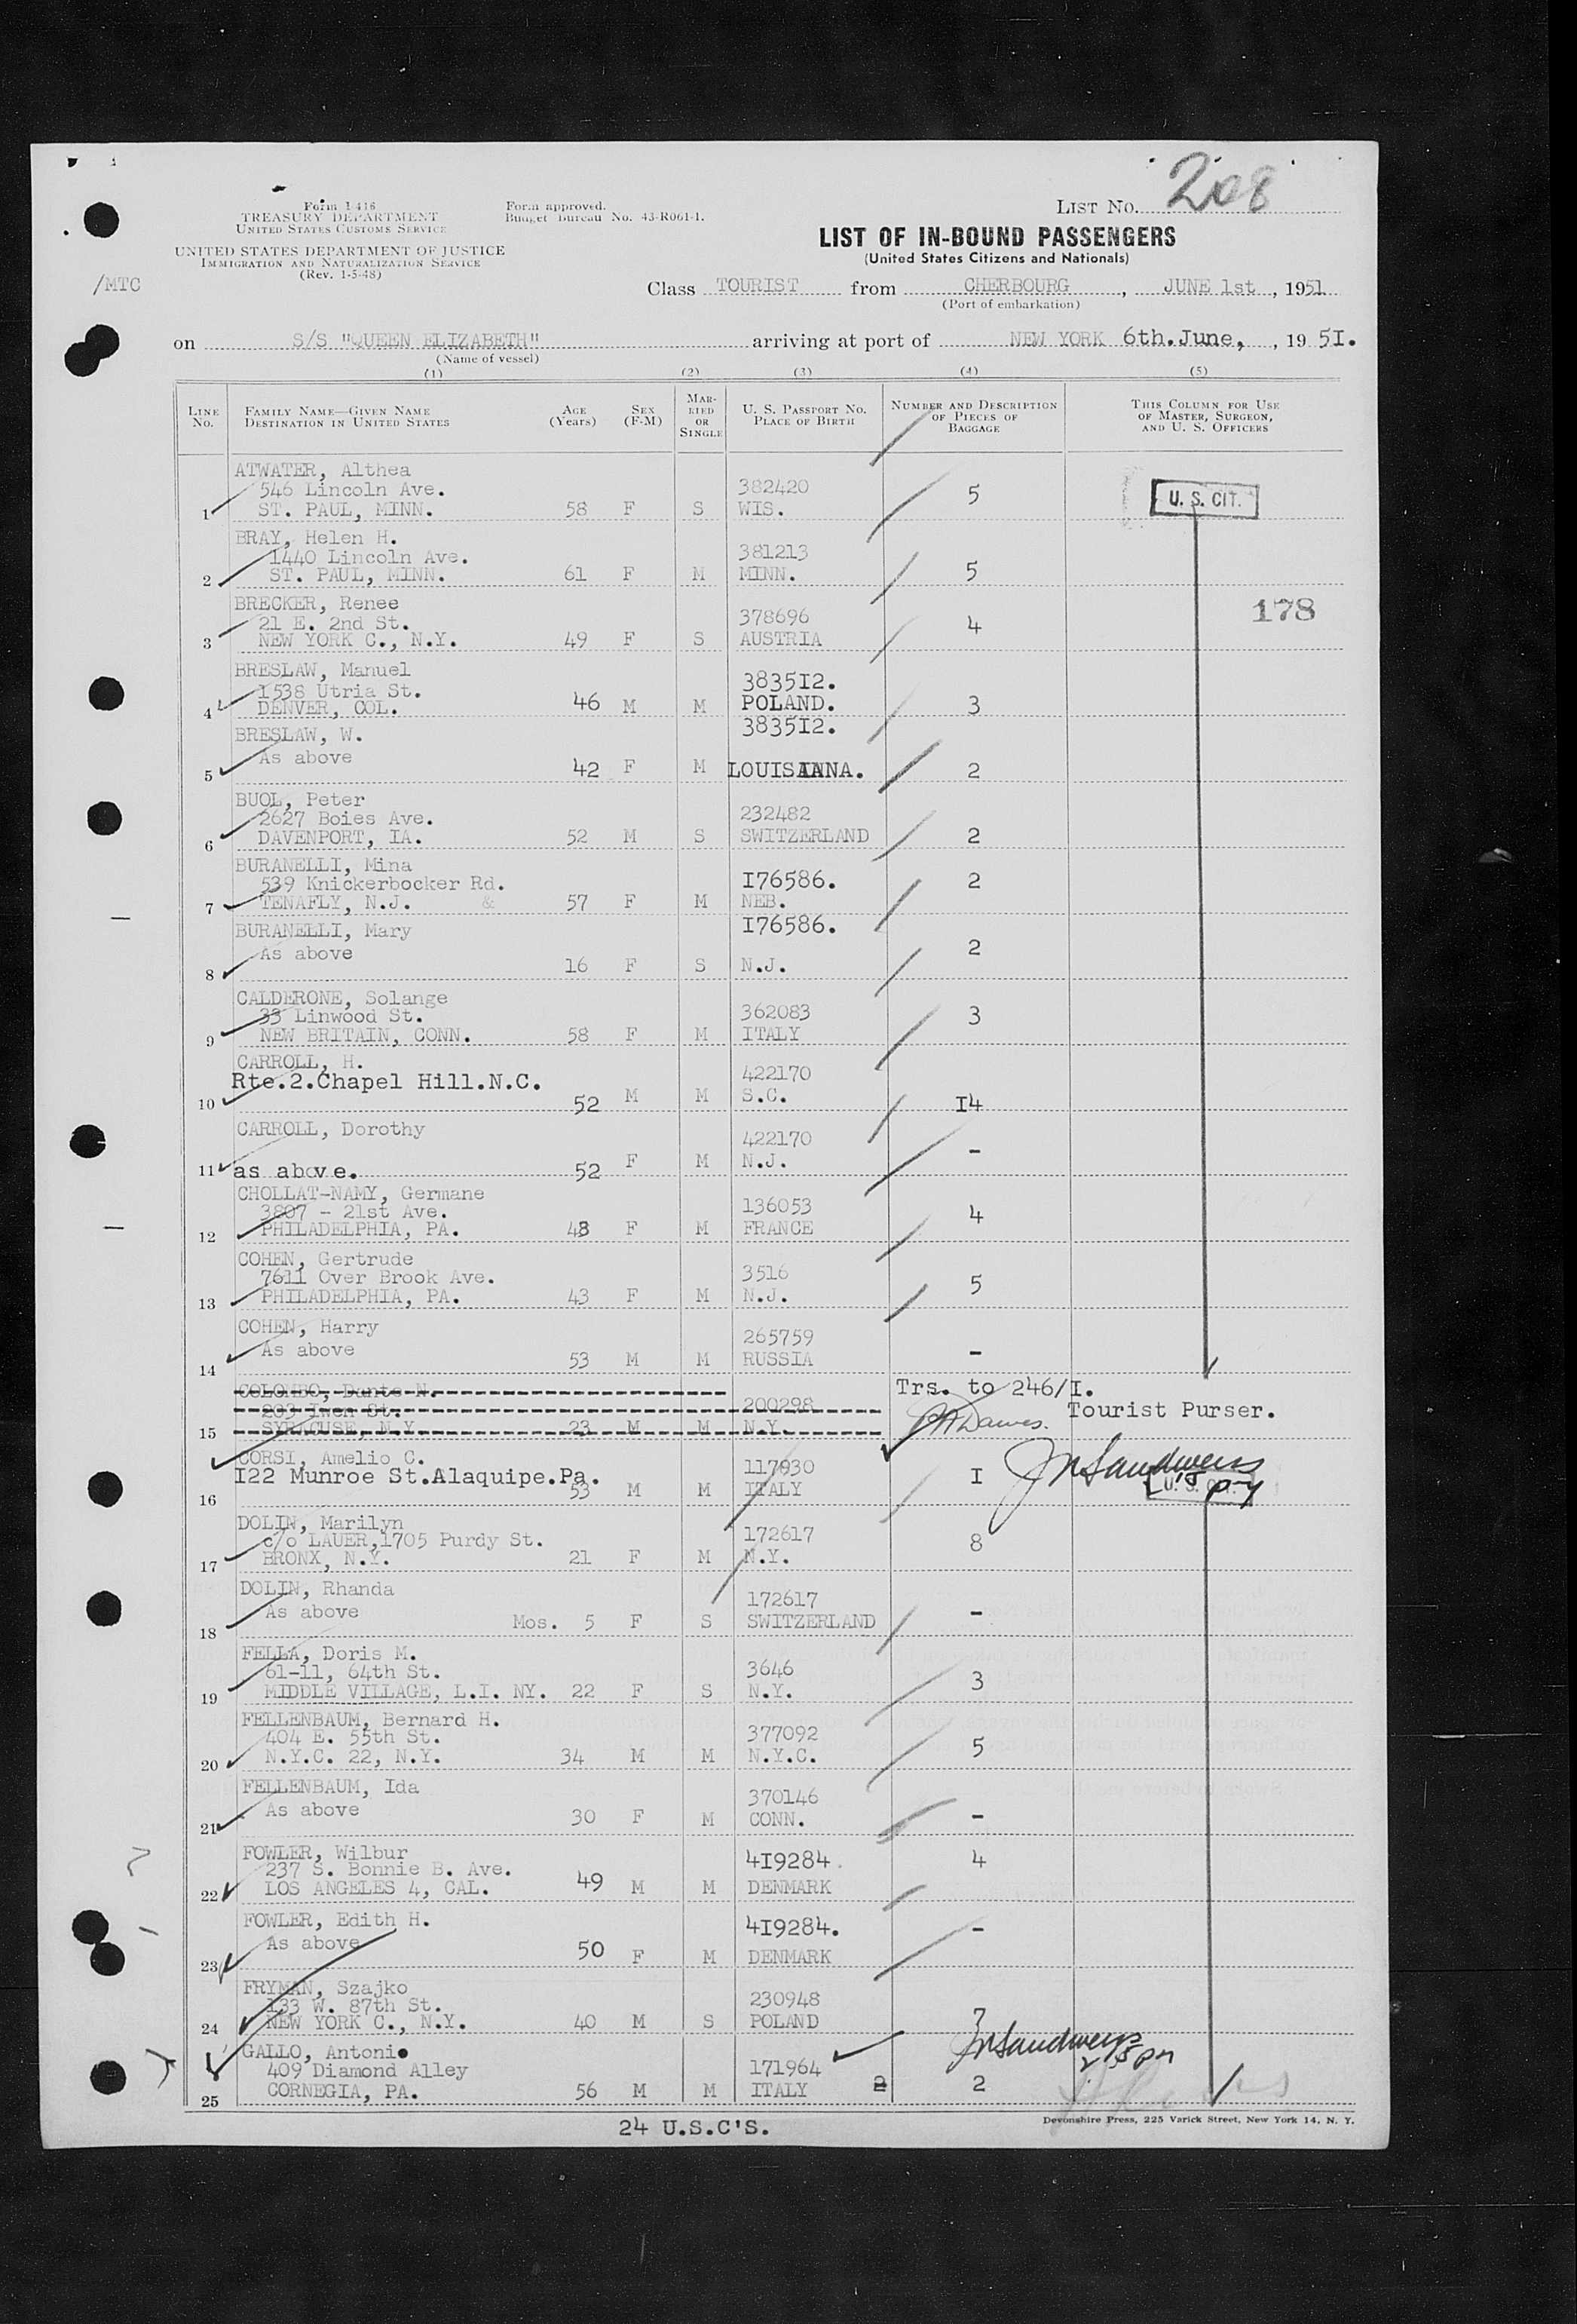 208
Form I 416
TREASURY DEPARTMENT
UNITED STATES CUSTOMS SERVICE
Form approved.
Budget Bureau No. 43-R061-1.
LIST NO.
UNITED STATES DEPARTMENT OF JUSTICE
IMMIGRATION AND NATURALIZATION SERVICE
(Rev. 1-5-48)
LIST OF IN-BOUND PASSENGERS
(United States Citizens and Nationals)
/MTC
Class TOURIST from CHERBOURG, JUNE 1st, 1951
(Port of embarkation)
on S/S "QUEEN ELIZABETH" arriving at port of NEW YORK 6th.June, , 19 5I.
(Name of vessel)
(1) (2) (3) (4) (5)
LINE NO.
FAMILY NAME—GIVEN NAME
DESTINATION IN UNITED STATES
AGE (Years)
SEX (F-M)
MARRIED OR SINGLE
U. S. PASSPORT NO.
PLACE OF BIRTH
NUMBER AND DESCRIPTION
OF PIECES OF
BAGGAGE
THIS COLUMN FOR USE
OF MASTER, SURGEON,
AND U. S. OFFICERS
ATWATER, Althea
546 Lincoln Ave. 382420 5 U. S. CIT.
1 ST. PAUL, MINN. 58 F S WIS.
BRAY, Helen H.
1440 Lincoln Ave. 381213
2 ST. PAUL, MINN. 61 F M MINN. 5
BRECKER, Renee 178
21 E. 2nd St. 378696 4
3 NEW YORK C., N.Y. 49 F S AUSTRIA
BRESLAW, Manuel
1538 Utria St. 3835I2.
4 DENVER, COL. 46 M M POLAND. 3
BRESLAW, W. 3835I2.
As above
5 42 F M LOUISIANNA. 2
BUOL, Peter
2627 Boies Ave. 232482
6 DAVENPORT, IA. 52 M S SWITZERLAND 2
BURANELLI, Mina
539 Knickerbocker Rd. I76586. 2
7 TENAFLY, N.J. & 57 F M NEB.
BURANELLI, Mary I76586.
As above 2
8 16 F S N.J.
CALDERONE, Solange
33 Linwood St. 362083 3
9 NEW BRITAIN, CONN. 58 F M ITALY
CARROLL, H.
Rte.2.Chapel Hill.N.C. 422170
10 52 M M S.C. I4
CARROLL, Dorothy 422170
11 as above. 52 F M N.J. -
CHOLLAT-NAMY, Germane
3807 - 21st Ave. 136053 4
12 PHILADELPHIA, PA. 48 F M FRANCE
COHEN, Gertrude
7611 Over Brook Ave. 3516 5
13 PHILADELPHIA, PA. 43 F M N.J.
COHEN, Harry 265759
As above
14 53 M M RUSSIA -
COLOMBO, Dante N. Trs. to 246/I.
203 Iwen St. 200298 Tourist Purser.
15 SYRACUSE, N.Y. 23 M M N.Y.
CORSI, Amelio C. 117930
I22 Munroe St.Alaquipe.Pa. I U. S. CIT.
16 53 M M ITALY
DOLIN, Marilyn
c/o LAUER,1705 Purdy St. 172617 8
17 BRONX, N.Y. 21 F M N.Y.
DOLIN, Rhanda 172617
As above
18 Mos. 5 F S SWITZERLAND -
FELLA, Doris M.
61-11, 64th St. 3646 3
19 MIDDLE VILLAGE, L.I. NY. 22 F S N.Y.
FELLENBAUM, Bernard H.
404 E. 55th St. 377092
20 N.Y.C. 22, N.Y. 34 M M N.Y.C. 5
FELLENBAUM, Ida 370146
As above
21 30 F M CONN. -
FOWLER, Wilbur
237 S. Bonnie B. Ave. 4I9284. 4
22 LOS ANGELES 4, CAL. 49 M M DENMARK
FOWLER, Edith H. 4I9284. -
As above
23 50 F M DENMARK
FRYMAN, Szajko
133 W. 87th St. 230948
24 NEW YORK C., N.Y. 40 M S POLAND 7
GALLO, Antonio
409 Diamond Alley 171964
25 CORNEGIA, PA. 56 M M ITALY 2 2
24 U.S.C'S.
Devonshire Press, 225 Varick Street, New York 14, N. Y.